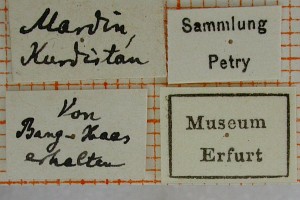 Mardin,
Kurdistán
Sammlung
Petry
Von
Bang-Haas
erhalten
Museum
Erfurt